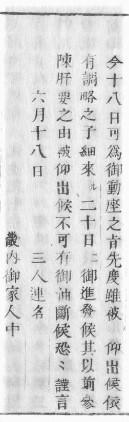 今十八日可為御動座之旨先度雖被　仰出候俟
有調略之子細來ル二十日ニ御進發候其以前參
陳肝要之由被仰出候不可有御油斷候恐〻謹言
六月十八日
三人連名
畿内御家人中